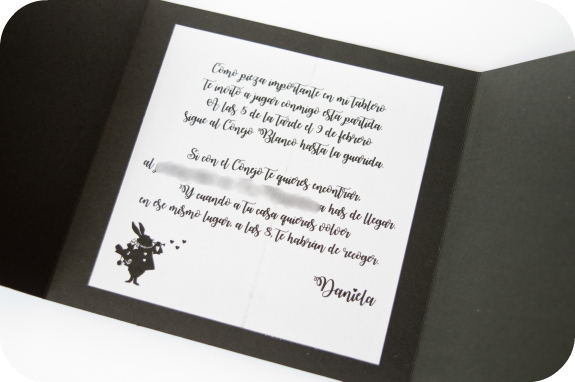 Como pieza importante en mi tablero
te invito a jugar conmigo esta partida.
A las 5 de la tarde el 9 de febrero
sigue al Conejo Blanco hasta la guarida.
Si con el Conejo te quieres encontrar,
al, a has de llegar.
Y cuando a tu casa quieras volver
en ese mismo lugar, a las 8, te habrán de recoger.
Daniela